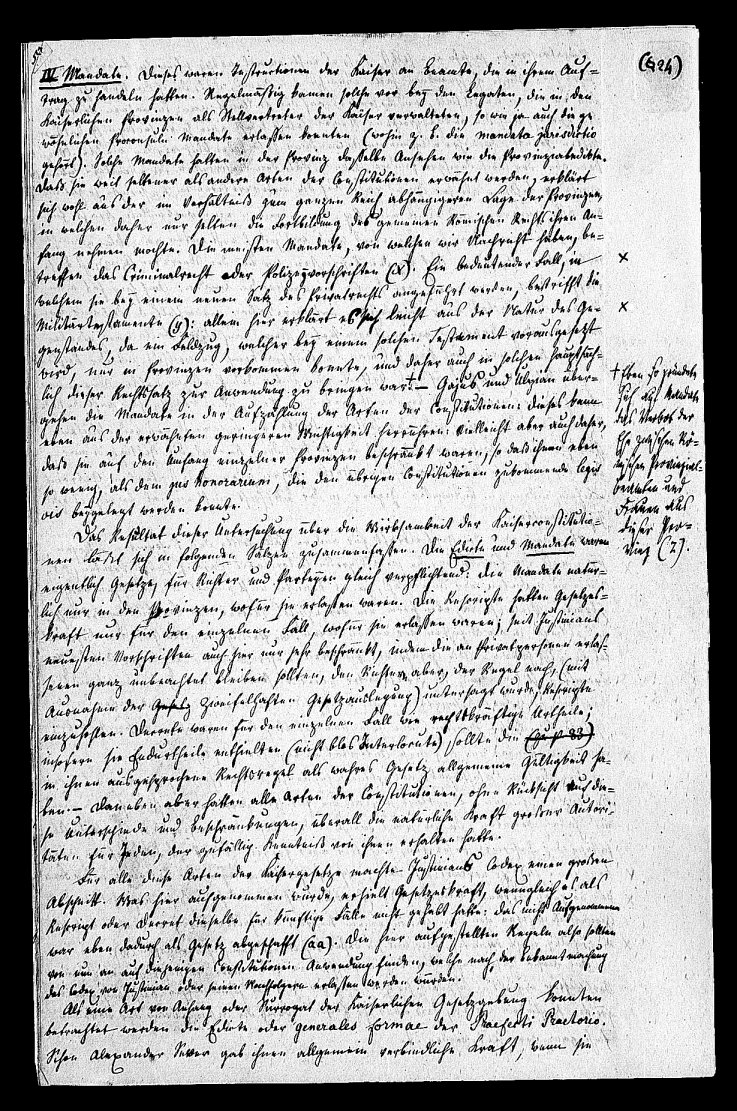 (§ 24)
IV Mandate. Dieses waren Instructionen der Kaiser an Beamte, die in ihrem Auf=
trag zu handeln hatten. Regelmäßig kamen solche vor bey den Legaten, die in den
Kaiserlichen Provinzen als Stellvertreter der Kaiser verwalteten, so wie ja auch die ge
wöhnlichen Proconsuln Mandate erlassen konnten (wohin z. B. die mandata jurisdictio
gehört). Solche Mandate hatten in der Provinz dasselbe Ansehen wie die Provinzialedicte.
Daß sie weit seltener als andere Arten der Constitutionen erwähnt werden, erklärt
sich wohl aus der im Verhältniß zum ganzen Reich abhängigeren Lage der Provinzen,
in welchen daher nur selten die Fortbildung des gemeinen Römischen Rechts ihren An=
fang nehmen mochte. Die meisten Mandate, von welchen wir Nachricht haben, be=
treffen das Criminalrecht oder Polizeyvorschriften (x). Ein bedeutender Fall, in
welchem sie bey einem neuen Satz des Privatrechts angeführt werden, betrifft die
Militärtestamente (y): allein hier erklärt es sich leicht aus der Natur des Ge=
genstandes, da ein Feldzug, welcher bey einem solchen Testament vorausgesetzt
wird, nur in Provinzen vorkommen konnte, und daher auch in solchen hauptsäch=
lich dieser Rechtssatz zur Anwendung zu bringen war. + — Gajus und Ulpian über=
gehen die Mandate in der Aufzählung der Arten der Constitutionen: dieses kann
eben aus der erwähnten geringeren Wichtigkeit herrühren: vielleicht aber auch daher,
daß sie auf den Umfang einzelner Provinzen beschränkt waren, so daß ihnen eben
so wenig, als dem jus honorarium, die den übrigen Constitutionen zukommende legis
vis beygelegt werden konnte.
+ Eben so gründete
sich auf Mandate
das Verbot der
Ehe zwischen Rö=
mischen Provinzial=
beamten und
Frauen aus
dieser Pro=
vinz (z).
Das Resultat dieser Untersuchung über die Wirksamkeit der Kaiserconstitutio=
nen läßt sich in folgenden Sätzen zusammenfassen. Die Edicte und Mandate waren
eigentlich Gesetze, für Richter und Parteyen gleich verpflichtend: die Mandate natür=
lich nur in den Provinzen, wofür sie erlassen waren. Die Rescripte hatten Gesetzes=
kraft nur für den einzelnen Fall, wofür sie erlassen waren; seit Justinians
neuesten Vorschriften auch hier nur sehr beschränkt, indem die an Privatpersonen erlas=
senen ganz unbeachtet bleiben sollten, den Richtern aber, der Regel nach, (mit
Ausnahme der zweifelhaften Gesetzauslegung) untersagt wurde, Rescripte
einzuholen. Decrete waren für den einzelnen Fall wie rechtskräftige Urtheile;
insofern sie Endurtheile enthielten (nicht blos Interlocute), sollte die
in ihnen ausgesprochene Rechtsregel als wahres Gesetz allgemeine Gültigkeit ha=
ben. — Daneben aber hatten alle Arten der Constitutionen, ohne Rücksicht auf die=
se Unterschiede und Beschränkungen, überall die natürliche Kraft großer Autori=
täten für Jeden, der zufällig Kenntniß von ihnen erhalten hatte.
Für alle diese Arten der Kaisergesetze machte Justinians Codex einen großen
Abschnitt. Was hier aufgenommen wurde, erhielt Gesetzeskraft, wenngleich es als
Rescript oder Decret dieselbe für künftige Fälle nicht gehabt hatte: das nicht Aufgenommene
war eben dadurch als Gesetz abgeschafft (aa). Die hier aufgestellten Regeln also sollten
von nun an auf diejenigen Constitutionen Anwendung finden, welche nach der Bekanntmachung
des Codex von Justinian oder seinen Nachfolgern erlassen werden würden.
Als eine Art von Anhang oder Surrogat der Kaiserlichen Gesetzgebung konnten
betrachtet werden die Edicte oder generales formae der Praefecti Praetorio.
Schon Alexander Sever gab ihnen allgemein verbindliche Kraft, wenn sie